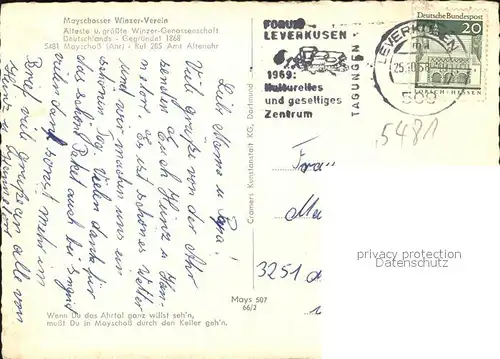 Mayschosser Winzer-Verein
Älteste u. größte Winzer-Genossenschaft
Deutschlands - Gegründet 1868
5481 Mayschoß (Ahr) - Ruf 205 Amt Altenahr
Liebe Mama u. Papa!
Viele Grüße von der Ahr
senden Euch Heinz u. Han-
nelore. Es ist schönes Wetter
und wir machen uns ein
schönen Tag. Vielen Dank für
das Paket auch bei
vielen Dank sonst mehr im
Brief viele Grüße an alle von
Heinz u. Hannelore
Wenn Du das Ahrtal ganz willst seh'n,
mußt Du in Mayschoß durch den Keller geh'n.
Cramers Kunstanstalt KG, Dortmund
Mays 507
66/2
FORUM
LEVERKUSEN
1969:
Kulturelles
und geselliges
Zentrum
TAGUNGEN
LEVERKUSEN
509
Deutsche Bundespost
20
LORSCH/HESSEN
5481
Frau
3251
privacy protection
Datenschutz